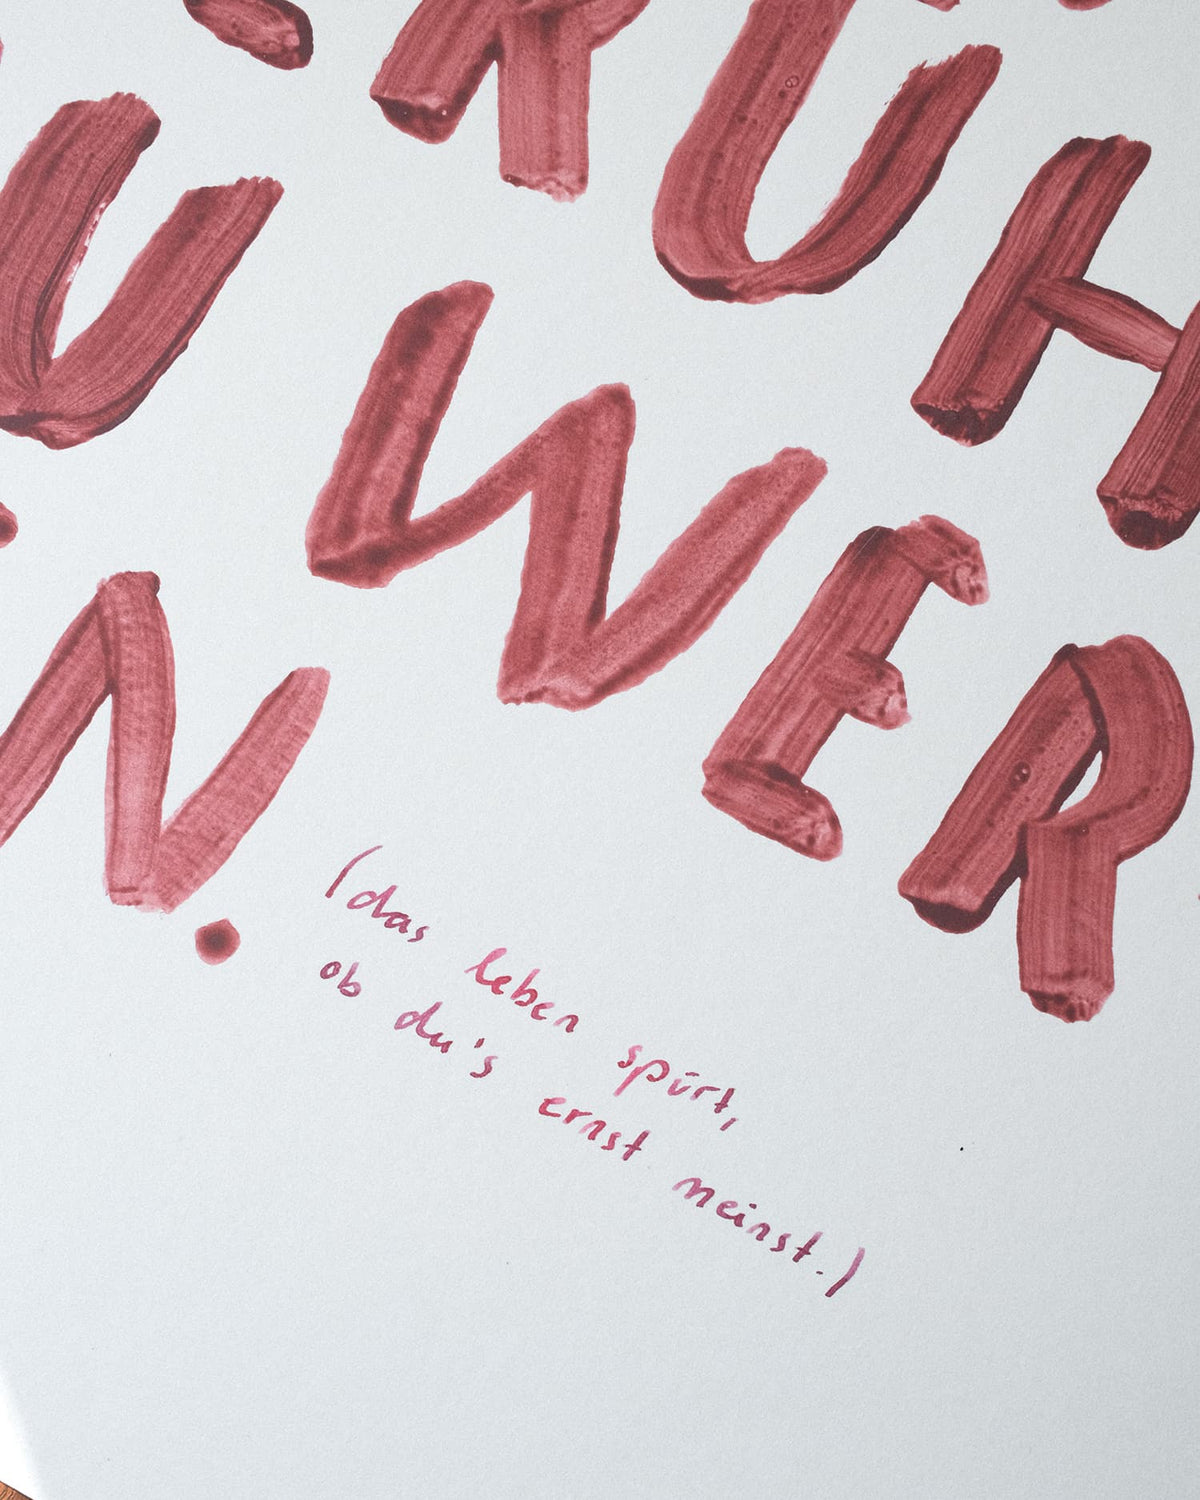 RUH
U WER
N.
(das leben spürt,
ob du's ernst meinst.)